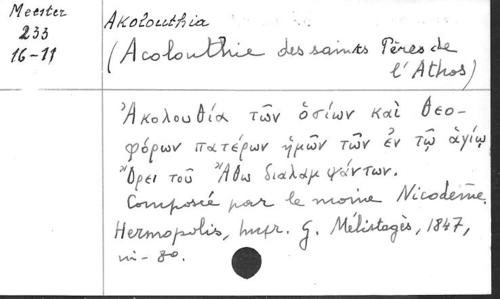 Meester
233
16-11
Akolouthia
(Acolouthie des saints Pères de
l'Athos)
Ἀκολουθία τῶν ὁσίων καὶ Θεο-
φόρων πατέρων ἡμῶν τῶν ἐν τῷ ἁγίῳ
Ὄρει τοῦ Ἄθω διαλαμψάντων.
Composée par le moine Nicodème.
Hermopolis, impr. G. Mélistagès, 1847,
in-8o.